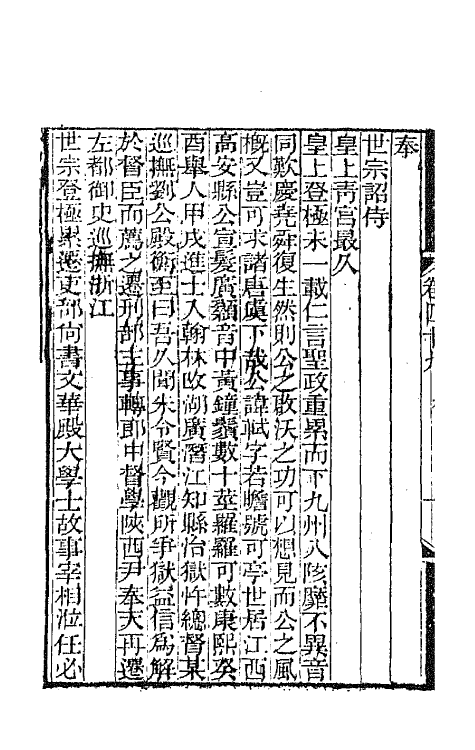 奉
世宗詔侍
皇上靑宮最久
皇上登極未一載仁言聖政重累而下九州八陔靡不異音
同歎慶堯舜復生然則公之啟沃之功可以想見而公之風
槪又豈可求諸唐虞下哉公諱軾字若瞻號可亭世居江西
高安縣公宣髮廣顙音中黃鐘鬚數十莖羅羅可數康熙癸
酉舉人甲戌進士入翰林改湖廣潛江知縣治獄忤總督某
巡撫劉公殿衡至曰吾久聞朱令賢今觀所爭獄益信爲解
於督臣而薦之遷刑部主事轉郎中督學陝西尹奉天再遷
左都御史巡撫浙江
世宗登極累遷吏部尙書文華殿大學士故事宰相涖任必
卷四十九